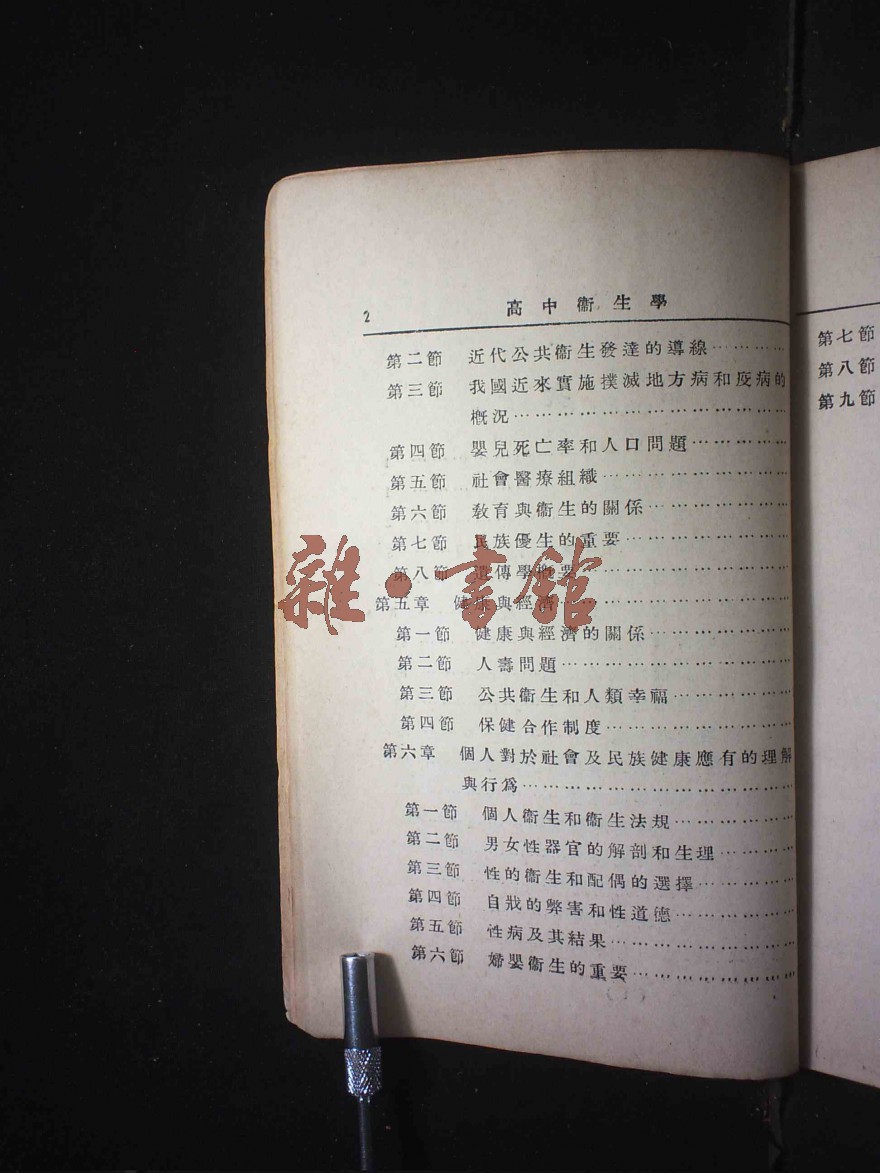 2
高中衞生學
第二節 近代公共衞生發達的導線…………
第三節 我國近來實施撲滅地方病和疫病的
概况…………………………………
第四節 嬰兒死亡率和人口問題……………
第五節 社會醫療組織………………………
第六節 教育與衞生的關係…………………
第七節 民族優生的重要……………………
第八節 遺傳學概要…………………………
第五章 健康與經濟……………………………
第一節 健康與經濟的關係…………………
第二節 人壽問題……………………………
第三節 公共衞生和人類幸福………………
第四節 保健合作制度………………………
第六章 個人對於社會及民族健康應有的理解
與行爲…………………………………
第一節 個人衞生和衞生法規………………
第二節 男女性器官的解剖和生理…………
第三節 性的衞生和配偶的選擇……………
第四節 自戕的弊害和性道德………………
第五節 性病及其結果………………………
第六節 婦嬰衞生的重要……………………
第七節
第八節
第九節
雜·書館